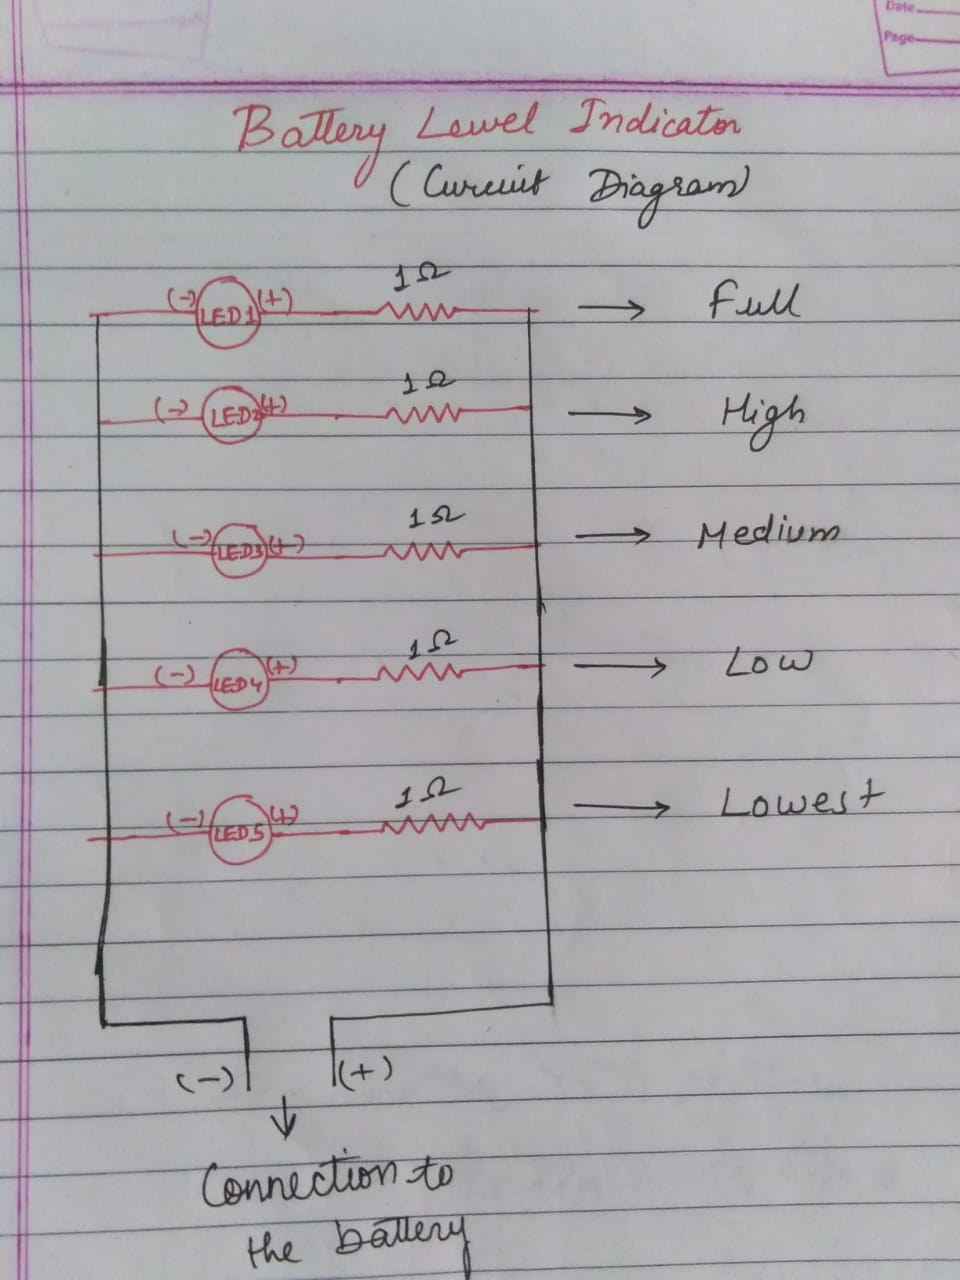 Date
Page
Battery Lewel Indicator
(Curcuit Diagram)
1Ω
(-) LED1 (+) → Full
1Ω
(-) LED2 (+) → High
1Ω
(-) LED3 (+) → Medium
1Ω
(-) LED4 (+) → Low
1Ω
(-) LED5 (+) → Lowest
(-) (+)
↓
Connection to
the battery